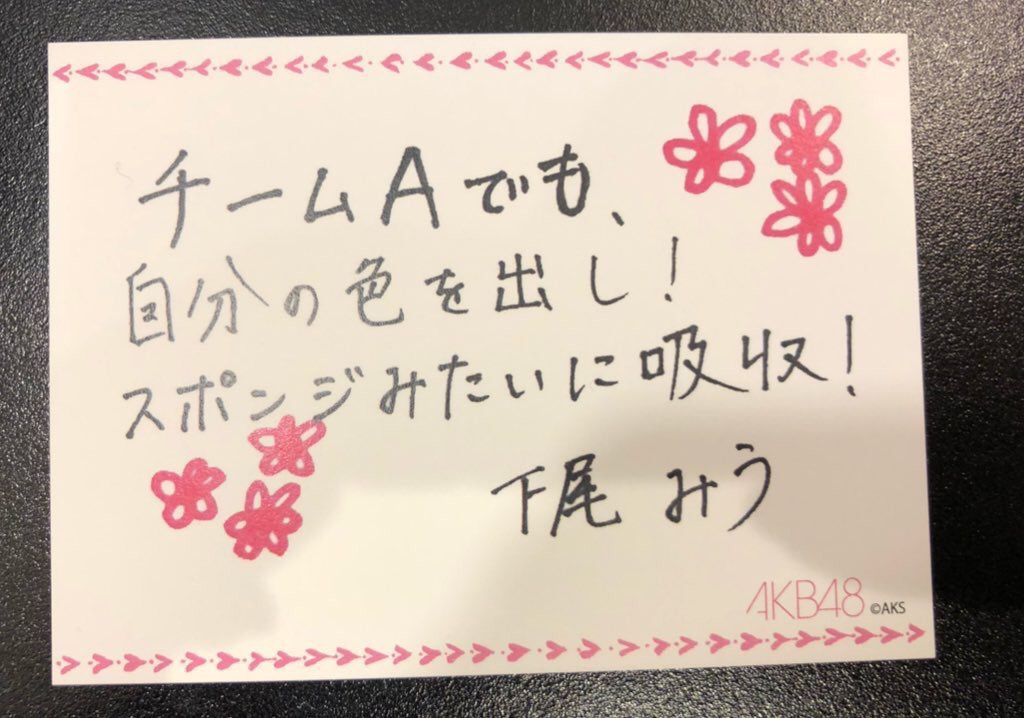 チームAでも、
自分の色を出し!
スポンジみたいに吸収!
下尾 みう
AKB48 ©AKS